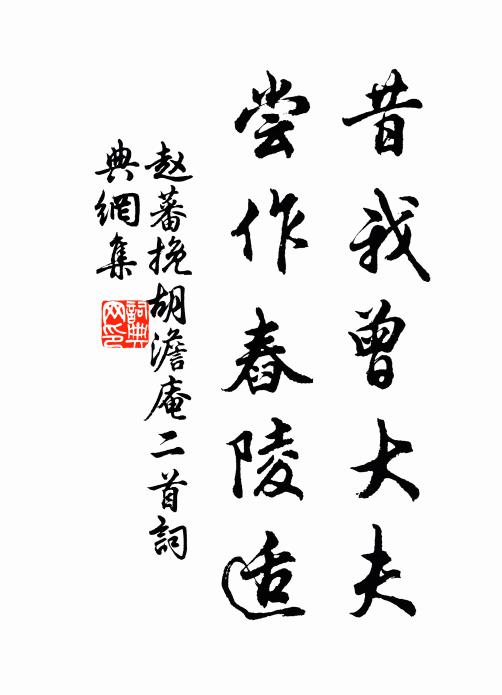 昔我曾大夫
尝作舂陵适
赵蕃挽胡澹庵二首詞
典網集
詞典
网印